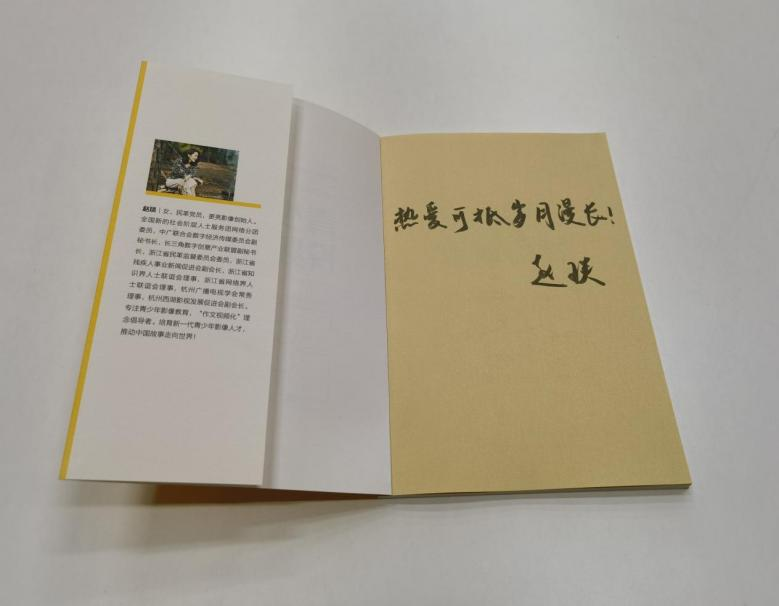 赵琰｜女，民革党员，墨亮影像创始人。
全国新的社会阶层人士服务团网络分团
委员，中广联合会数字经济传媒委员会副
秘书长，长三角数字创意产业联盟副秘书
长，浙江省民革监督委员会委员，浙江省
残疾人事业新闻促进会副会长，浙江省知
识界人士联谊会理事，浙江省网络界人
士联谊会理事，杭州广播电视学会常务
理事，杭州西湖影视发展促进会副会长。
专注青少年影像教育，“作文视频化”理
念倡导者。培育新一代青少年影像人才，
推动中国故事走向世界！
热爱可抵岁月漫长！
赵琰